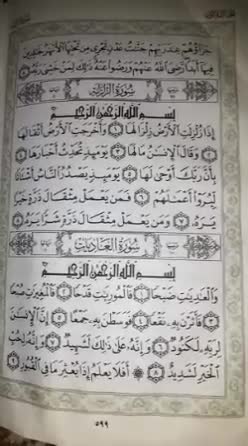 جَزَآؤُهُمْ عِندَ رَبِّهِمْ جَنَّٰتُ عَدْنٍ تَجْرِى مِن تَحْتِهَا ٱلْأَنْهَٰرُ خَٰلِدِينَ
فِيهَآ أَبَدًا رَّضِىَ ٱللَّهُ عَنْهُمْ وَرَضُوا۟ عَنْهُ ذَٰلِكَ لِمَنْ خَشِىَ رَبَّهُۥ ٨
سُورَةُ الزَّلْزَلَةِ
بِسْمِ ٱللَّهِ ٱلرَّحْمَٰنِ ٱلرَّحِيمِ
إِذَا زُلْزِلَتِ ٱلْأَرْضُ زِلْزَالَهَا ١ وَأَخْرَجَتِ ٱلْأَرْضُ أَثْقَالَهَا
٢ وَقَالَ ٱلْإِنسَٰنُ مَا لَهَا ٣ يَوْمَئِذٍ تُحَدِّثُ أَخْبَارَهَا ٤
بِأَنَّ رَبَّكَ أَوْحَىٰ لَهَا ٥ يَوْمَئِذٍ يَصْدُرُ ٱلنَّاسُ أَشْتَاتًا
لِّيُرَوْا۟ أَعْمَٰلَهُمْ ٦ فَمَن يَعْمَلْ مِثْقَالَ ذَرَّةٍ خَيْرًا
يَرَهُۥ ٧ وَمَن يَعْمَلْ مِثْقَالَ ذَرَّةٍ شَرًّا يَرَهُۥ ٨
سُورَةُ الْعَادِيَاتِ
بِسْمِ ٱللَّهِ ٱلرَّحْمَٰنِ ٱلرَّحِيمِ
وَٱلْعَٰدِيَٰتِ ضَبْحًا ١ فَٱلْمُورِيَٰتِ قَدْحًا ٢ فَٱلْمُغِيرَٰتِ صُبْحًا
٣ فَأَثَرْنَ بِهِۦ نَقْعًا ٤ فَوَسَطْنَ بِهِۦ جَمْعًا ٥ إِنَّ ٱلْإِنسَٰنَ
لِرَبِّهِۦ لَكَنُودٌ ٦ وَإِنَّهُۥ عَلَىٰ ذَٰلِكَ لَشَهِيدٌ ٧ وَإِنَّهُۥ لِحُبِّ
ٱلْخَيْرِ لَشَدِيدٌ ٨ أَفَلَا يَعْلَمُ إِذَا بُعْثِرَ مَا فِى ٱلْقُبُورِ ٩
٥٩٩